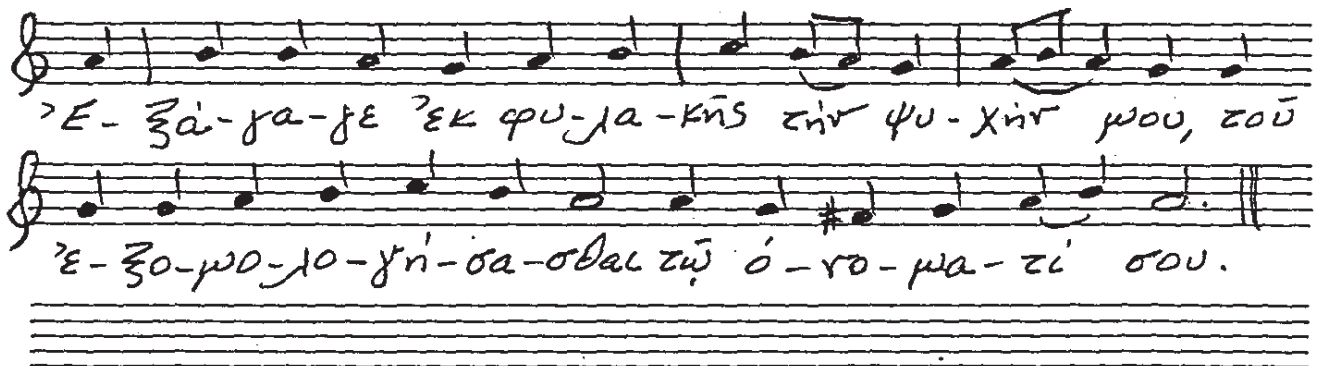 Ἐ-ξά-γα-γε ἐκ φυ-λα-κῆς τήν ψυ-χήν μου, τοῦ
ἐ-ξο-μο-λο-γή-σα-σθαι τῷ ὀ-νο-μα-τί σου.